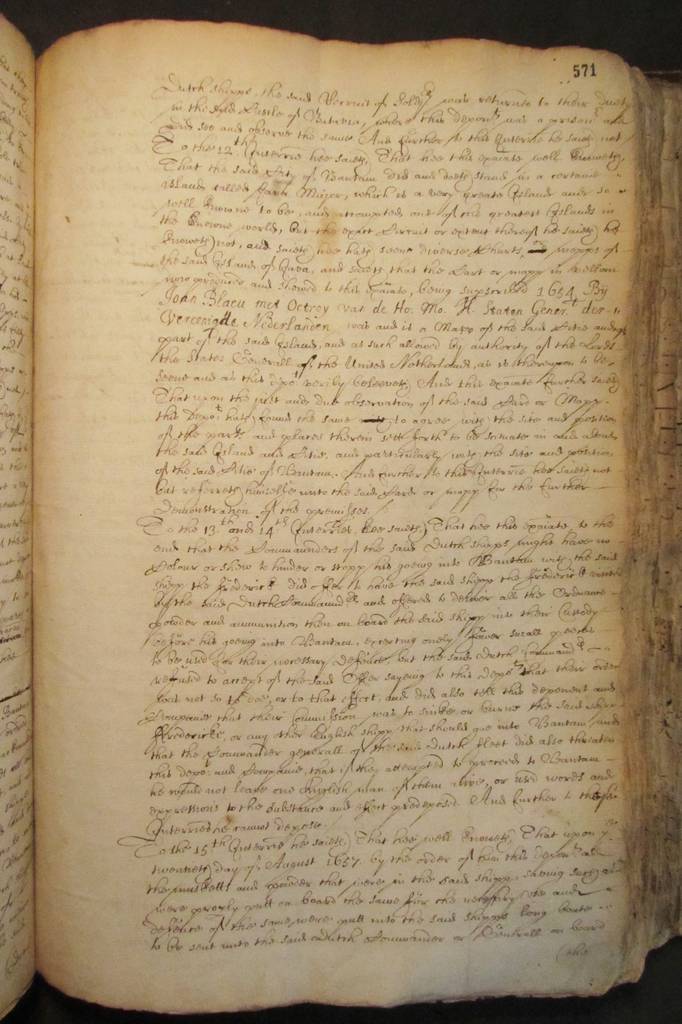 571
Dutch shipps, the said Recruit of Sold.rs was returned to their duty
in the said Castle of Batavia, where this depon.t was a prisoner and
did see and observe the same And further to this Interrie he saieth not
To the 12th Interrie hee saieth, That hee this exãiate well knoweth
That the said City of Bantam did and doeth stand in a certaine
Island called Java Major, which is a very greate Island and so
well knowne to be, and accompted one of the greatest Islands in
the knowne world, but the exact Circuit or extent thereof he saieth he
knoweth not, and saieth hee hath seene diverse Charts and mapps of
the said Island of Java, and saieth that the Card or mapp in Vellam
now produced and shewed to this exãiate, being superscribed 1654 By
Joan Blaeu met Octroy van de Ho. Mo. H. Staten Gener.l der
Vereenigde Nederlanden, was and is a Mapp of the said Citie and
part of the said Island, and as such allowed by authority of the Lords
the States Generall of the United Netherland, as is thereupon to be
seene and as this depo.t verily beleeveth, And this exãiate further saieth
That upon the just and due observation of the said Card or Mapp
this Depo.t hath found the same to agree with the site and position
of the parts and places therein sett forth to be scituate in and about
the said Island and Citie, and particularly with the site and position
of the said Citie of Bantam. And further to this Interrie hee saieth not
but referreth himselfe unto the said Card or mapp for the further
Demonstration of the premisses.
To the 13.th and 14.th Interries. hee saieth That hee this exãiate to the
end that the Commanders of the said Dutch shipps might have no
Colour or shew to hinder or stopp his goeing into Bantam with the said
shipp the Frederick did offer to have the said shipp the Frederick
by the said Dutch Commander and offered to deliver all the Ordnance
powder and ammunition then on board the said shipp into their Custody
before his goeing into Bantam, excepting onely fower small peeces
to be used for their necessary defence, but the said Dutch Command.r
refused to accept of the said offer sayeing to this depo.t that their order
was not so to doe, or to that effect, and did also tell this deponent and
Companie that their Commission was to sincke or burne the said shipp
Fredericke, or any other English shipp that should goe into Bantam, and
that the Commander generall of the said Dutch fleet did also threaten
this depo.t and Companie, that if they attempted to proceed to Bantam
he would not leave one English man of them alive, or used words and
expressions to the substance and effect predeposed. And further to theise
Interries he cannot depose.
To the 15th Interrie he saieth, That hee well knoweth, That upon ye
twentieth day of August 1657. by the order of him this depon.t all
the musketts and powder that were in the said shipp
were purposely putt on board the same for the necessary use and
defence of the same, were putt into the said shipps long boate
to be sent unto the said Dutch Commander or Generall on board
the